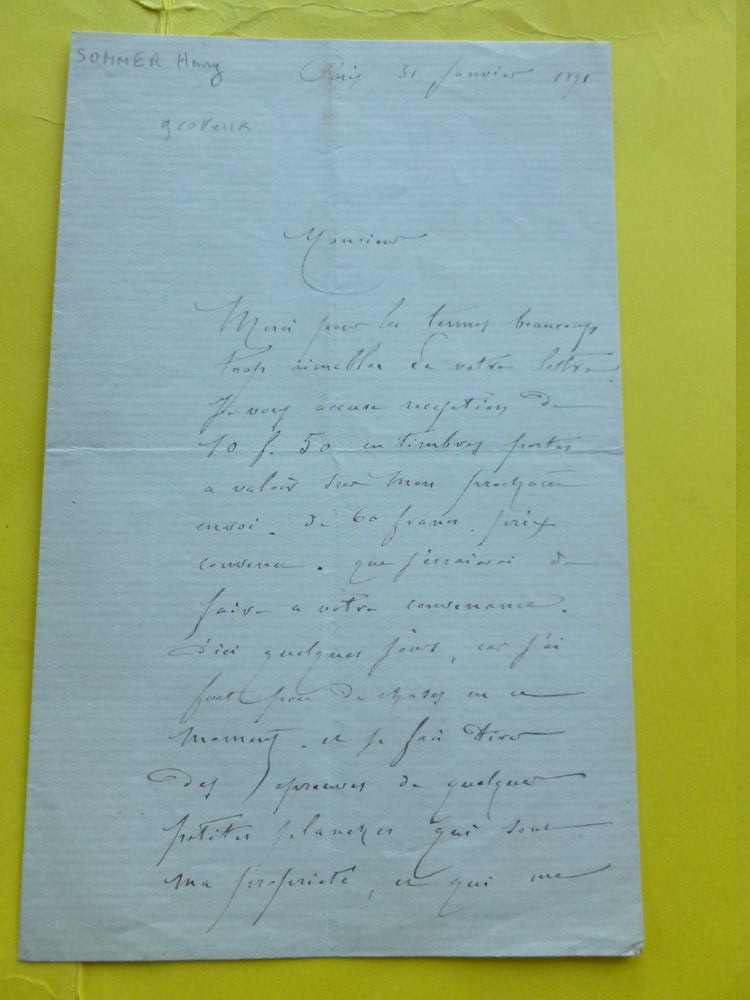 SOMMER Henry
graveur
Paris 31 Janvier 1891
Monsieur
Merci pour les termes beaucoup
trop aimables de votre lettre.
Je vous accuse reception de
10 f. 50 en timbres postes
a valoir sur mon prochain
envoi. de 60 francs. prix
convenu. que j'essaierai de
faire a votre convenance.
d'ici quelques jours, car j'ai
fort peu de choses en ce
moment. et je fais tirer
des epreuves de quelques
petites planches qui sont
ma proprieté, et qui me